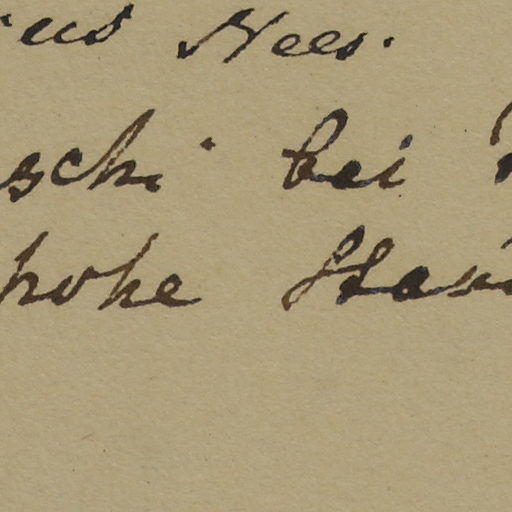 eus Nees.
schi bei
hohe